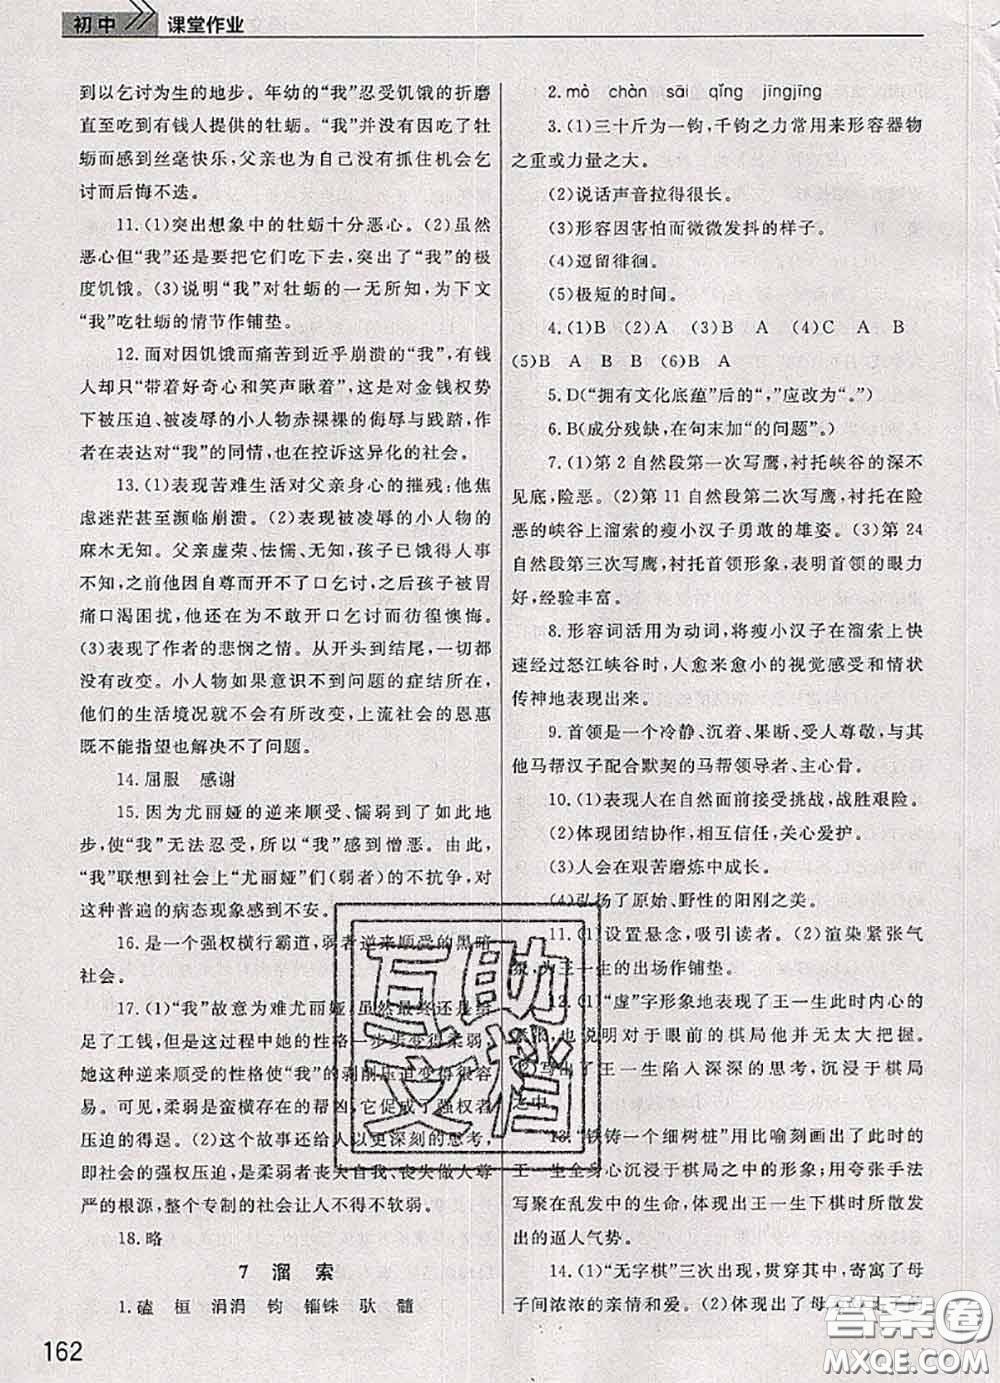 初中 课堂作业
到以乞讨为生的地步。年幼的“我”忍受饥饿的折磨
直至吃到有钱人提供的牡蛎。“我”并没有因吃了牡
蛎而感到丝毫快乐，父亲也为自己没有抓住机会乞
讨而后悔不迭。
11.(1)突出想象中的牡蛎十分恶心。(2)虽然
恶心但“我”还是要把它们吃下去，突出了“我”的极
度饥饿。(3)说明“我”对牡蛎的一无所知，为下文
“我”吃牡蛎的情节作铺垫。
12.面对因饥饿而痛苦到近乎崩溃的“我”，有钱
人却只“带着好奇心和笑声瞅着”，这是对金钱权势
下被压迫、被凌辱的小人物赤裸裸的侮辱与践踏，作
者在表达对“我”的同情，也在控诉这异化的社会。
13.(1)表现苦难生活对父亲身心的摧残：他焦
虑迷茫甚至濒临崩溃。(2)表现被凌辱的小人物的
麻木无知。父亲虚荣、怯懦、无知，孩子已饿得人事
不知，他因自尊而开不了口乞讨，之后孩子被胃
痛口渴困扰，他还在为不敢开口乞讨而彷徨懊悔。
(3)表现了作者的悲悯之情。从开头到结尾，一切都
没有改变。小人物如果意识不到问题的症结所在，
他们的生活境况就不会有所改变，上流社会的恩惠
既不能指望也解决不了问题。
14.屈服 感谢
15.因为尤丽娅的逆来顺受、懦弱到了如此地
步，使“我”无法忍受，所以“我”感到憎恶。由此，
“我”联想到社会上“尤丽娅”们(弱者)的不抗争，对
这种普遍的病态现象感到不安。
16.是一个强权横行霸道，弱者逆来顺受的黑暗
社会。
17.(1)“我”故意为难尤丽娅，虽然最终还是给
足了工钱，但这个过程中她的性格一步步变得柔弱，
她这种逆来顺受的性格使“我”的剥削压迫变得很容
易。可见，柔弱是蛮横存在的帮凶，它促成了强权者
压迫的得逞。(2)这个故事还给人以更深刻的思考，
即社会的强权压迫，是柔弱者丧失自我、丧失做人尊
严的根源，整个专制的社会让人不得不软弱。
18.略
7 溜索
1.磕 桓 涓涓 钧 锱铢 驮 髓
162
2.mò chàn sāi qǐng jīngjīng
3.(1)三十斤为一钧，千钧之力常用来形容器物
之重或力量之大。
(2)说话声音拉得很长。
(3)形容因害怕而微微发抖的样子。
(4)逗留徘徊。
(5)极短的时间。
4.(1)B (2)A (3)B A (4)C A B
(5)B A B B (6)B A
5.D(“拥有文化底蕴”后的“，”应改为“。”)
6.B(成分残缺，在句末加“的问题”。)
7.(1)第2自然段第一次写鹰，衬托峡谷的深不
见底，险恶。(2)第11自然段第二次写鹰，衬托在险
恶的峡谷上溜索的瘦小汉子勇敢的雄姿。(3)第24
自然段第三次写鹰，衬托首领形象，表明首领的眼力
好，经验丰富。
8.形容词活用为动词，将瘦小汉子在溜索上快
速经过怒江峡谷时，人愈来愈小的视觉感受和情状
传神地表现出来。
9.首领是一个冷静、沉着、果断、受人尊敬，与其
他马帮汉子配合默契的马帮领导者、主心骨。
10.(1)表现人在自然面前接受挑战，战胜艰险。
(2)体现团结协作，相互信任，关心爱护。
(3)人会在艰苦磨炼中成长。
(4)弘扬了原始、野性的阳刚之美。
11.(1)设置悬念，吸引读者。(2)渲染紧张气
氛，为王一生的出场作铺垫。
12.(1)“虚”字形象地表现了王一生此时内心的
，也说明对于眼前的棋局他并无太大把握。
(2)写出了王一生陷入深深的思考，沉浸于棋局
之中。
13.“铁铸一个细树桩”用比喻刻画出了此时的
王一生全身心沉浸于棋局之中的形象；用夸张手法
写聚在乱发中的生命，体现出王一生下棋时所散发
出的逼人气势。
14.(1)“无字棋”三次出现，贯穿其中，寄寓了母
子间浓浓的亲情和爱。(2)体现出了母
互助文档
答案卷
MXQE.COM